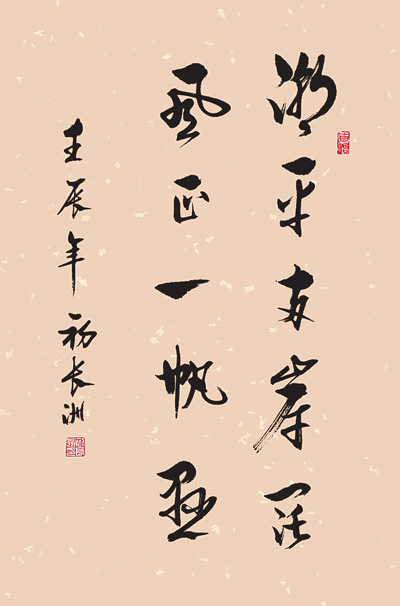 潮平两岸阔
风正一帆悬
壬辰年初长洲